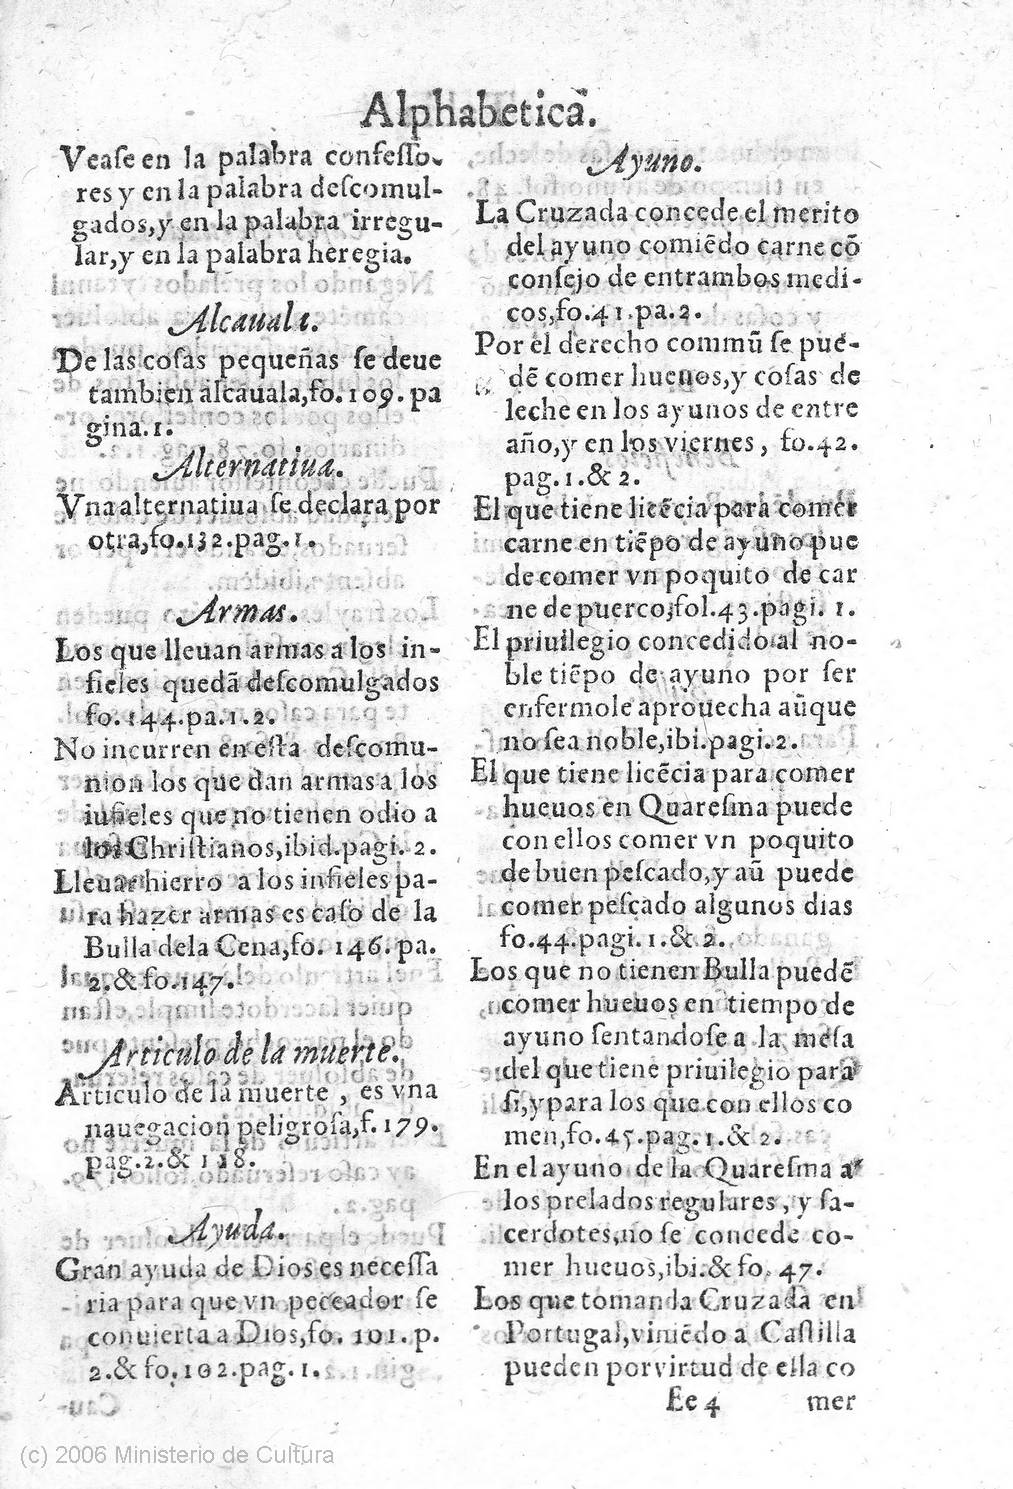 Alphabetica.
Veaſe en la palabra confeſſo-
res y en la palabra deſcomul-
gados,y en la palabra irregu-
lar,y en la palabra heregia.
Alcauala.
De las coſas pequeñas ſe deue
tambien alcauala,fo.109.pa
gina.1.
Alternatiua.
Vna alternatiua ſe declara por
otra,fo.132.pag.1.
Armas.
Los que lleuan armas a los in-
fieles quedã deſcomulgados
fo.144.pa.1.2.
No incurren en eſta deſcomu-
nion los que dan armas a los
iufieles que no tienen odio a
los Chriſtianos,ibid.pagi.2.
Lleuar hierro a los infieles pa-
ra hazer armas es caſo de la
Bulla dela Cena,fo. 146.pa.
2.& fo.147.
Articulo de la muerte.
Articulo de la muerte , es vna
nauegacion peligroſa,f.179.
pag.2.& 118.
Ayuda.
Gran ayuda de Dios es neceſſa
ria para que vn peccador ſe
conuierta a Dios,fo. 101.p.
2.& fo.102.pag.1.
Ayuno.
La Cruzada concede el merito
del ayuno comiẽdo carne cõ
conſejo de entrambos medi-
cos,fo.41.pa.2.
Por el derecho commũ ſe pue-
dẽ comer hueuos,y coſas de
leche en los ayunos de entre
año,y en los viernes, fo.42.
pag.1.& 2.
El que tiene licẽcia para comer
carne en tiẽpo de ayuno pue
de comer vn poquito de car
ne de puerco,fol.43.pagi. 1.
El priuilegio concedido al no-
ble tiẽpo de ayuno por ſer
enfermo le aprouecha aũque
no ſea noble,ibi.pagi.2.
El que tiene licẽcia para comer
hueuos en Quareſma puede
con ellos comer vn poquito
de buen peſcado,y aũ puede
comer peſcado algunos dias
fo.44.pagi.1.& 2.
Los que no tienen Bulla puedẽ
comer hueuos en tiempo de
ayuno ſentandoſe a la meſa
del que tiene priuilegio para
ſi,y para los que con ellos co
men,fo.45.pag.1.& 2.
En el ayuno de la Quareſma a
los prelados regulares, y ſa-
cerdotes,no ſe concede co-
mer hueuos,ibi.& fo. 47.
Los que toman da Cruzada en
Portugal,viniẽdo a Caſtilla
pueden por virtud de ella co
Ee 4 mer
(c) 2006 Ministerio de Cultura